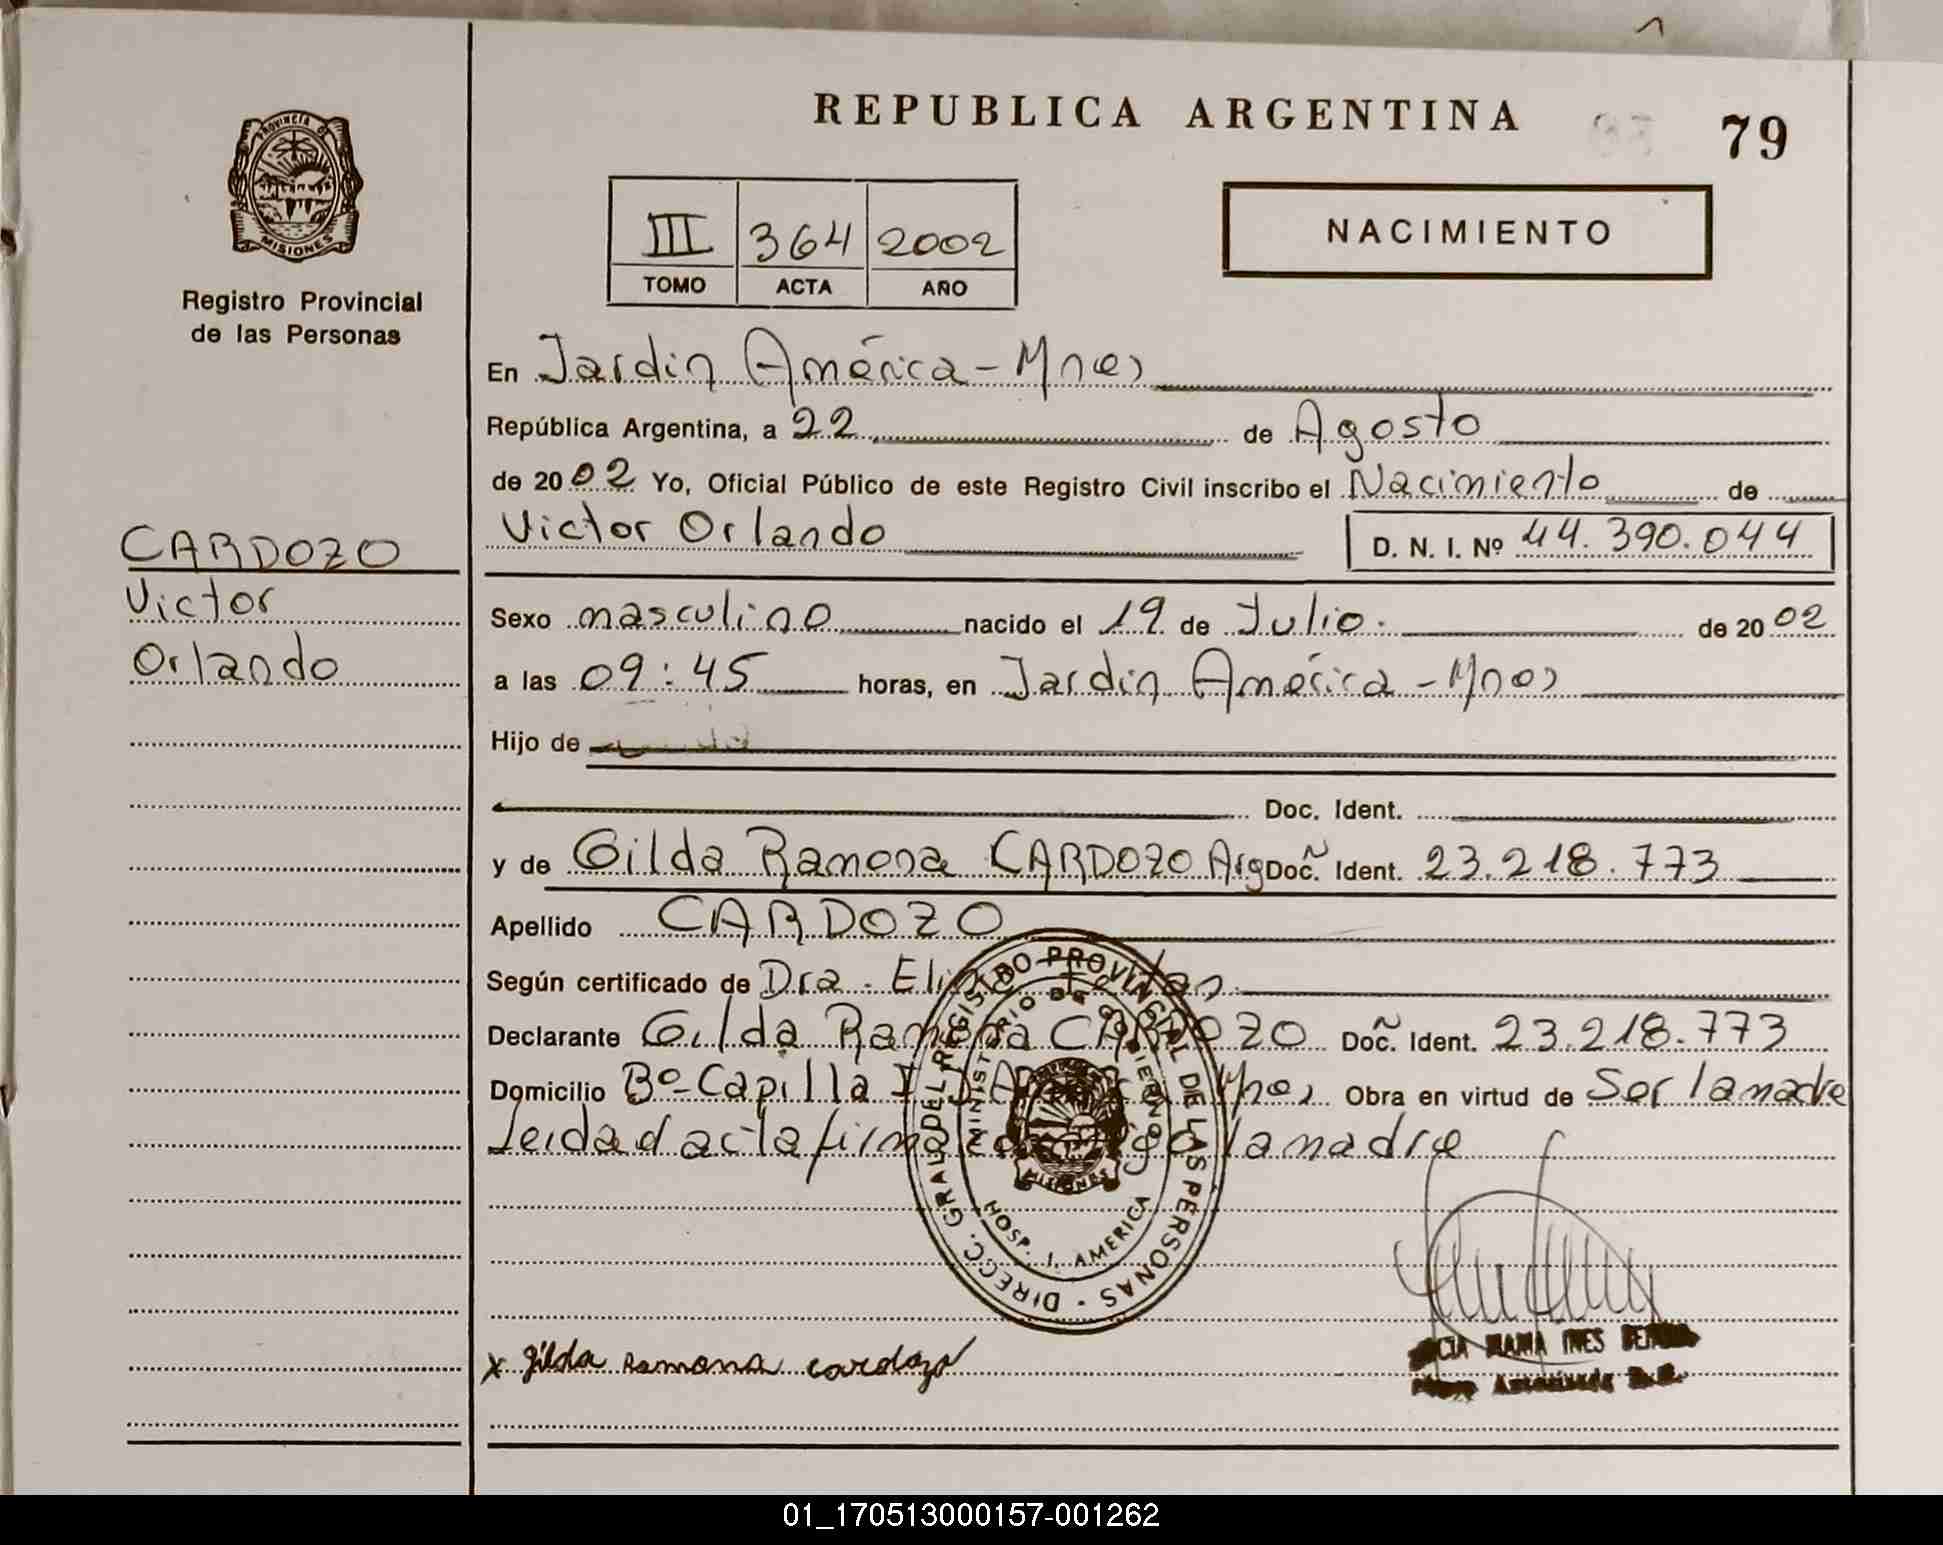 REPUBLICA ARGENTINA
79
PROVINCIA DE
MISIONES
Registro Provincial
de las Personas
III 364 2002
TOMO ACTA AÑO
NACIMIENTO
En Jardin América - Mnes
República Argentina, a 22 de Agosto
de 2002 Yo, Oficial Público de este Registro Civil inscribo el Nacimiento de
Victor Orlando D. N. I. Nº 44.390.044
CARDOZO
Victor
Orlando
Sexo masculino nacido el 19 de Julio. de 2002
a las 09:45 horas, en Jardin América - Mnes
Hijo de
Doc. Ident.
y de Gilda Ramona CARDOZO Argñ Doc. Ident. 23.218.773
Apellido CARDOZO
Según certificado de Dra.
Declarante Gilda Ramona CARDOZO Doc. Ident. 23.218.773
Domicilio Bº Capilla I J. América Mnes Obra en virtud de Ser la madre
Leida el acta firma conmigo la madre
DIRECC. GRAL DEL REGISTRO PROVINCIAL DE LAS PERSONAS
MINISTERIO DE GOBIERNO
MISIONES
HOSP. J. AMERICA
x gilda Ramona cardozo
MARIA INES
Autorizada
01_170513000157-001262